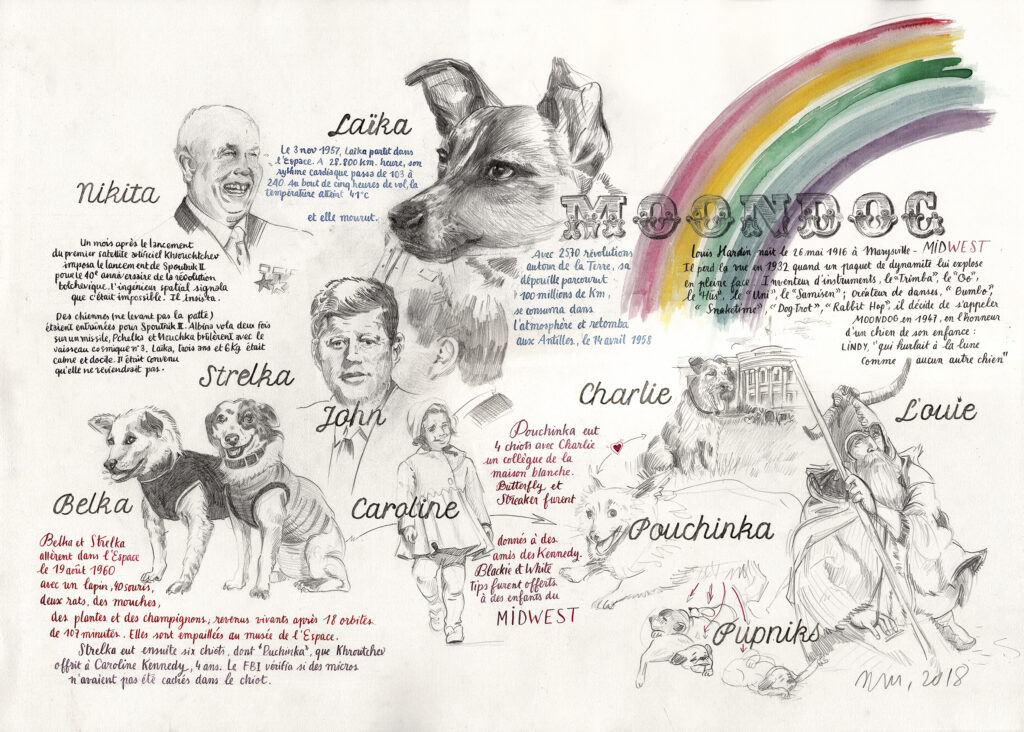 Laïka
Le 3 nov 1957, Laïka partit dans
l'Espace. A 28.800 km. heure, son
rythme cardiaque passa de 103 à
240. Au bout de cinq heures de vol, la
température atteint 41°C
et elle mourut.
Nikita
Un mois après le lancement
du premier satellite artificiel Khrouchtchev
imposa le lancement de Spoutnik II
pour le 40e anniversaire de la révolution
bolchevique. L'ingénieur spatial signala
que c'était impossible. Il insista.
Des chiennes (ne levant pas la patte)
étaient entraînées pour Spoutnik II. Albina vola deux fois
sur un missile, Pchelka et Mouchka brûlèrent avec le
vaisseau cosmique n°3. Laïka, trois ans et 6kg était
calme et docile. Il était convenu
qu'elle ne reviendrait pas.
MOONDOG
Avec 2570 révolutions
autour de la Terre, sa
dépouille parcourut
100 millions de Km,
se consuma dans
l'atmosphère et retomba
aux Antilles, le 14 avril 1958
Louis Hardin naît le 26 mai 1916 à Marysville - MIDWEST
Il perd la vue en 1932 quand un paquet de dynamite lui explose
en pleine face. Inventeur d'instruments, le "Trimba", le "Oo",
le "Hüs", le "Uni", le "Samisen"; créateur de danses, "Bumbo",
"Snaketime", "Dog Trot", "Rabbit Hop", il décide de s'appeler
MOONDOG en 1947, en l'honneur
d'un chien de son enfance :
LINDY, "qui hurlait à la lune
comme aucun autre chien"
Strelka
John
Charlie
Louie
Belka
Caroline
Pouchinka eut
4 chiots avec Charlie
un collègue de la
maison blanche.
Butterfly et
Streaker furent
donnés à des
amis des Kennedy.
Blackie et White
Tips furent offerts
à des enfants du
MIDWEST
Pouchinka
Belka et Strelka
allèrent dans l'Espace
le 19 août 1960
avec un lapin, 40 souris,
deux rats, des mouches,
des plantes et des champignons, revenus vivants après 18 orbites
de 107 minutes. Elles sont empaillées au musée de l'Espace.
Strelka eut ensuite six chiots, dont "Puchinka", que Khroutchev
offrit à Caroline Kennedy, 4 ans. Le FBI vérifia si des micros
n'avaient pas été cachés dans le chiot.
Pupniks
2018